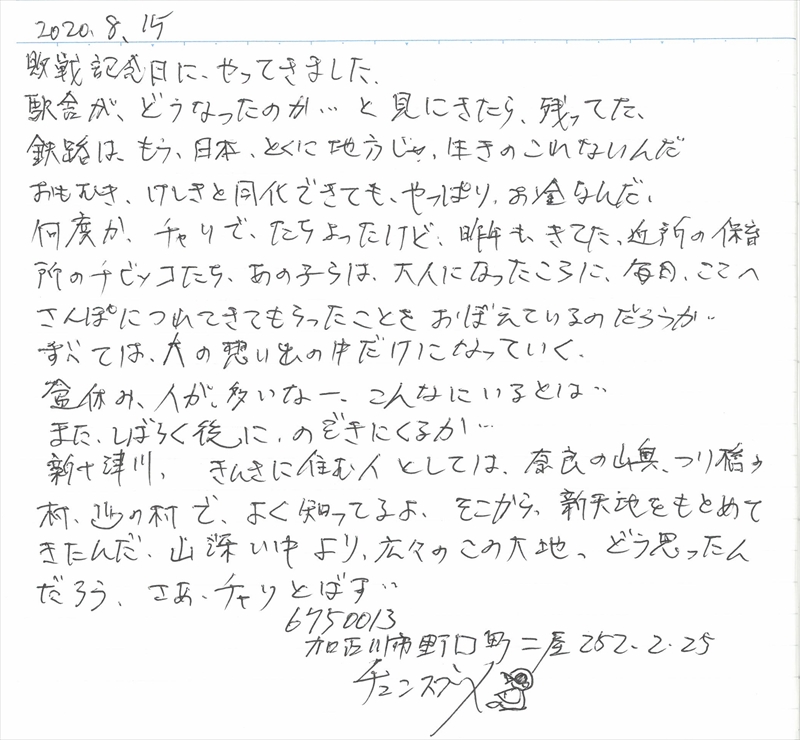 2020.8.15
敗戦記念日に、やってきました。
駅舎が、どうなったのか… と 見にきたら、残ってた、
鉄路は、もう、日本、とくに地方じゃ、生きのこれないんだ
おもむき、けしきと同化できても、やっぱり、お金なんだ、
何度か、チャリで、たちよったけど、昨年も、きてた、近所の保育
所のチビッコたち、あの子らは、大人になったころに、毎日、ここへ
さんぽにつれてきてもらったことを おぼえているのだろうか…
すべては、人の想い出の中だけになっていく、
盆休み、人が、多いなー、こんなにいるとは…
また、しばらく後に、のぞきにくるか…
新十津川、 きんきに住む人としては、奈良の山奥、つり橋の
村、山の村で、よく知ってるよ、そこから、新天地をもとめて
きたんだ、山深い中より、広々のこの大地、どう思ったん
だろう、さあ、チャリとばす…
6750013
加古川市野口町二屋252-2-25